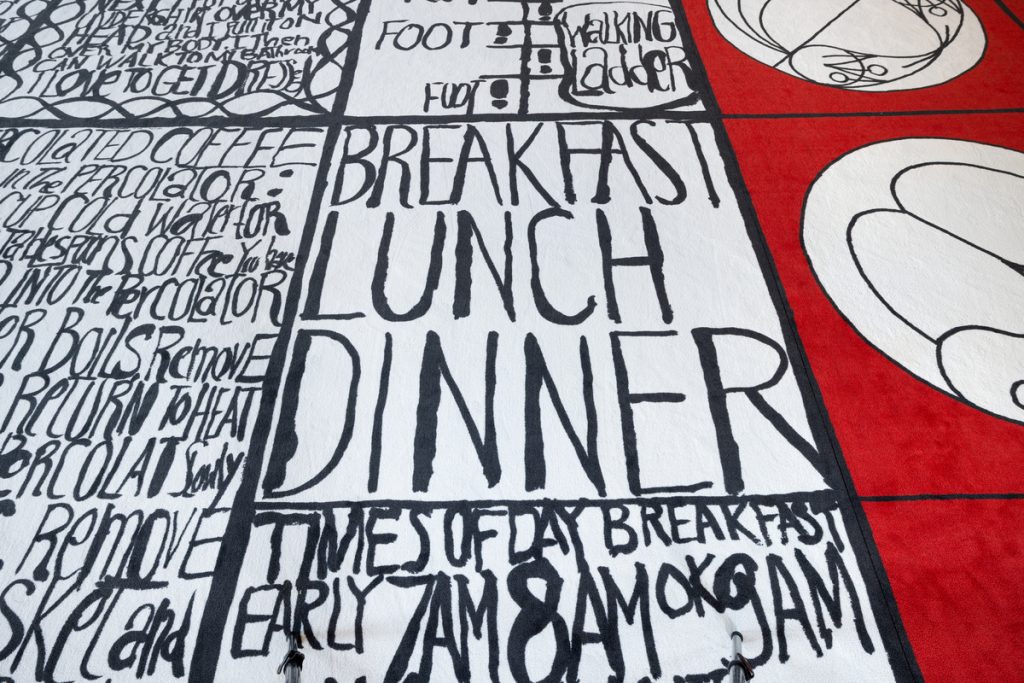 HEAD and I Pull it ON
OVER MY BODY. Then
CAN WALK TO
I LOVE TO GET
FOOT
FOOT
WALKING
LAdDER
COLATED COFFEE
IN The PERCOLATOR:
CUP COLd WATER FOR
COFFee You have
INTO The PerCOLATOR
OR BOILS Remove
RETURN TO HEAT
PERCOLAT Slowly
Remove
SKeT and
BREAKFAST
LUNCH
DINNER
TIMES OF DAY BREAKFAST
EARLY 7AM 8AM OK 9AM